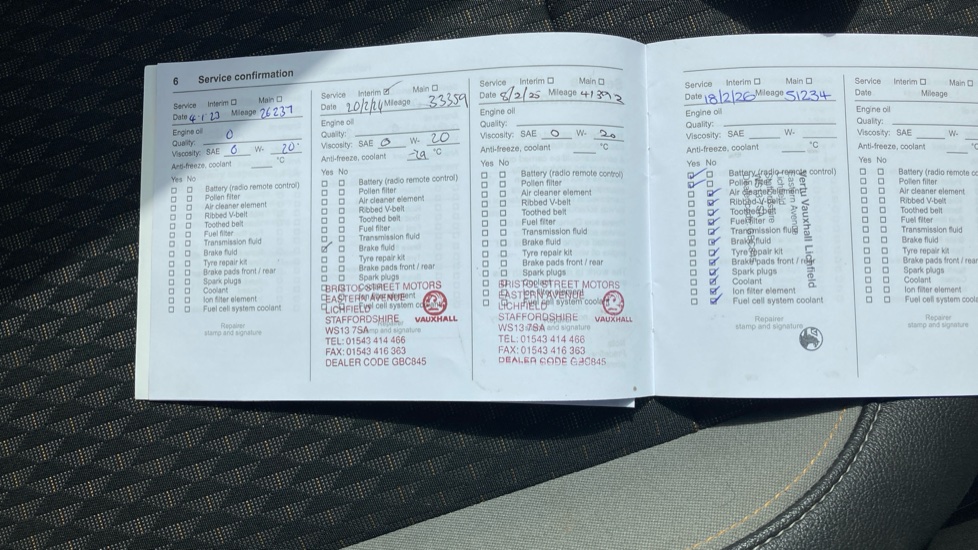 6 Service confirmation
Service Interim Main
Date 4.1.23 Mileage 26237
Engine oil
Quality: 0
Viscosity: SAE 0 W- 20
Anti-freeze, coolant °C
Yes No
Battery (radio remote control)
Pollen filter
Air cleaner element
Ribbed V-belt
Toothed belt
Fuel filter
Transmission fluid
Brake fluid
Tyre repair kit
Brake pads front / rear
Spark plugs
Coolant
Ion filter element
Fuel cell system coolant
Repairer
stamp and signature
Service Interim Main
Date 20/2/24 Mileage 33359
Engine oil
Quality:
Viscosity: SAE 0 W- 20
Anti-freeze, coolant °C
Yes No
Battery (radio remote control)
Pollen filter
Air cleaner element
Ribbed V-belt
Toothed belt
Fuel filter
Transmission fluid
Brake fluid
Tyre repair kit
Brake pads front / rear
Spark plugs
BRISTOL STREET MOTORS
EASTERN AVENUE
LICHFIELD
Fuel cell system
STAFFORDSHIRE
VAUXHALL
WS13 7SA
stamp and signature
TEL: 01543 414 466
FAX: 01543 416 363
DEALER CODE GBC845
Service Interim Main
Date 8/2/25 Mileage 41392
Engine oil
Quality:
Viscosity: SAE 0 W- 20
Anti-freeze, coolant °C
Yes No
Battery (radio remote control)
Pollen filter
Air cleaner element
Ribbed V-belt
Toothed belt
Fuel filter
Transmission fluid
Brake fluid
Tyre repair kit
Brake pads front / rear
Spark plugs
BRISTOL STREET MOTORS
EASTERN AVENUE
LICHFIELD
Fuel cell system
STAFFORDSHIRE
VAUXHALL
WS13 7SA
and signature
TEL: 01543 414 466
FAX: 01543 416 363
DEALER CODE GBC845
Service Interim Main
Date 18/2/26 Mileage 51234
Engine oil
Quality:
Viscosity: SAE W-
Anti-freeze, coolant °C
Yes No
Battery (radio remote control)
Pollen filter
Air cleaner element
Ribbed V-belt
Toothed belt
Fuel filter
Transmission fluid
Brake fluid
Tyre repair kit
Brake pads front / rear
Spark plugs
Coolant
Ion filter element
Fuel cell system coolant
Vertu Vauxhall Lichfield
Eastern Avenue
Repairer
stamp and signature
Service Interim Main
Date Mileage
Engine oil
Quality:
Viscosity: SAE W-
Anti-freeze, coolant
Yes No
Battery (radio remote
Pollen filter
Air cleaner element
Ribbed V-belt
Toothed belt
Fuel filter
Transmission fluid
Brake fluid
Tyre repair kit
Brake pads front / rear
Spark plugs
Coolant
Ion filter element
Fuel cell system
Repairer
stamp and signature